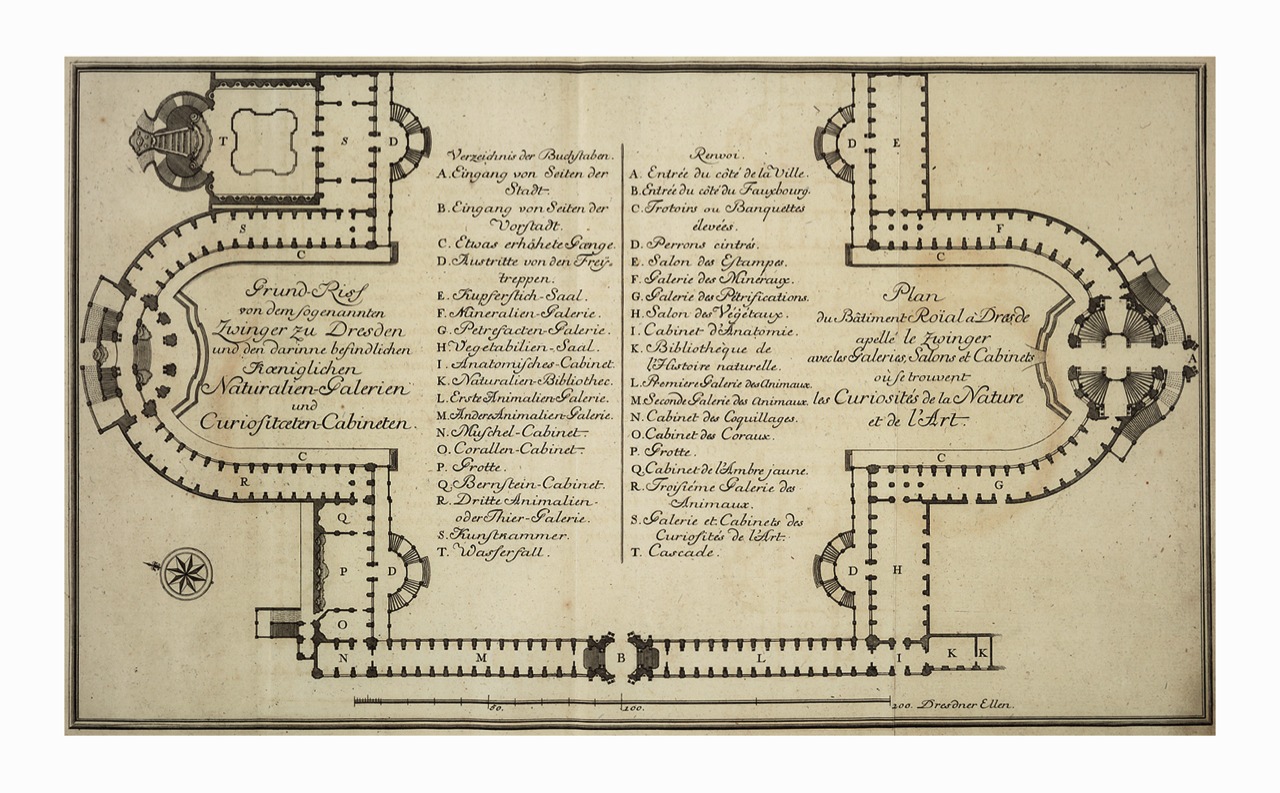 Verzeichnis der Buchstaben.
A. Eingang von Seiten der
Stadt.
B. Eingang von Seiten der
Vorstadt.
C. Etwas erhöhete Gænge.
D. Austritte von den Frey-
treppen.
E. Kupferstich-Saal.
F. Mineralien-Galerie.
G. Petrefacten-Galerie.
H. Vegetabilien-Saal.
I. Anatomisches-Cabinet.
K. Naturalien-Bibliothec.
L. Erste Animalien-Galerie.
M. Andere Animalien-Galerie.
N. Muschel-Cabinet.
O. Corallen-Cabinet.
P. Grotte.
Q. Bernstein-Cabinet.
R. Dritte Animalien-
oder Thier-Galerie.
S. Kunstkammer.
T. Wasserfall.
Renvoi.
A. Entrée du côté de la Ville.
B. Entrée du côté du Fauxbourg.
C. Trotoirs ou Banquettes
élevées.
D. Perrons cintrés.
E. Salon des Estampes.
F. Galerie des Mineraux.
G. Galerie des Pétrifications.
H. Salon des Végétaux.
I. Cabinet d'Anatomie.
K. Bibliothèque de
l'Histoire naturelle.
L. Premiere Galerie des Animaux.
M. Seconde Galerie des Animaux.
N. Cabinet des Coquillages.
O. Cabinet des Coraux.
P. Grotte.
Q. Cabinet de l'Ambre jaune.
R. Troisiéme Galerie des
Animaux.
S. Galerie et Cabinets des
Curiosités de l'Art.
T. Cascade.
Grund-Riss
von dem sogenannten
Zwinger zu Dresden
und den darinne befindlichen
Kœniglichen
Naturalien-Galerien
und
Curiositæten-Cabineten.
Plan
du Bâtiment Roïal à Dresde
apellé le Zwinger
avec les Galeries, Salons et Cabinets
où se trouvent
les Curiosités de la Nature
et de l'Art.
T
S
D
S
C
C
R
Q
P
D
O
N
M
B
L
I
K
K
D
E
F
C
A
C
G
D
H
50.
100.
200. Dresdner Ellen.